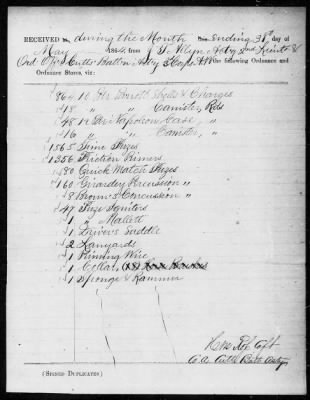 RECEIVED during the Month Ending 31st day of
May 1864, from
Ord. Offr. Battn Arty 3 Corps the following Ordnance and
Ordnance Stores, viz:
864 10 Pdr Parrott Shells & Charges
18 " " Canister, Rds
48 12 Pdr Napoleon Case, "
16 " " Canister, "
1565 Time Fuzes
1356 Friction Primers
180 Quick Match Fuzes
160 Girardey Percussion "
8 Concussion "
47 Fuze Igniters
1 " Mallett
1 Driver's Saddle
2 Lanyards
1 Priming Wire
1 Collar,
1 Sponge & Rammer
Capt
Co A Battn Arty
(SIGNED DUPLICATES.)